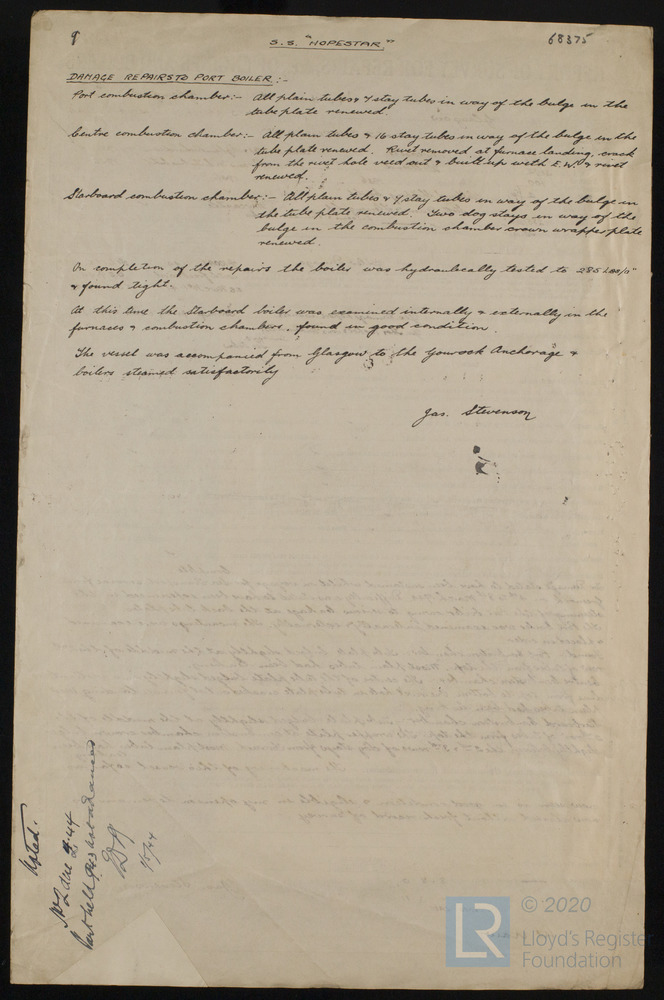 9
S.S. "HOPESTAR."
68375
DAMAGE REPAIRS TO PORT BOILER :-
Port combustion chamber:- All plain tubes & 7 stay tubes in way of the bulge in the
tube plate renewed.
Centre combustion chamber:- All plain tubes & 16 stay tubes in way of the bulge in the
tube plate renewed. Rivet removed at furnace landing, crack
from the rivet hole veed out & built up with E.W. & rivet
renewed.
Starboard combustion chamber:- All plain tubes & 7 stay tubes in way of the bulge in
the tube plate renewed. Two dog stays in way of the
bulge in the combustion chamber crown wrapper plate
renewed.
On completion of the repairs the boiler was hydraulically tested to 285 Lbs/□"
& found tight.
At this time the Starboard boiler was examined internally & externally in the
furnaces & combustion chambers, found in good condition.
The vessel was accompanied from Glasgow to the Gourock Anchorage &
boilers steamed satisfactorily
Jas. Stevenson
Noted.
due 2.44
Part held
© 2020
LR
Lloyd's Register
Foundation